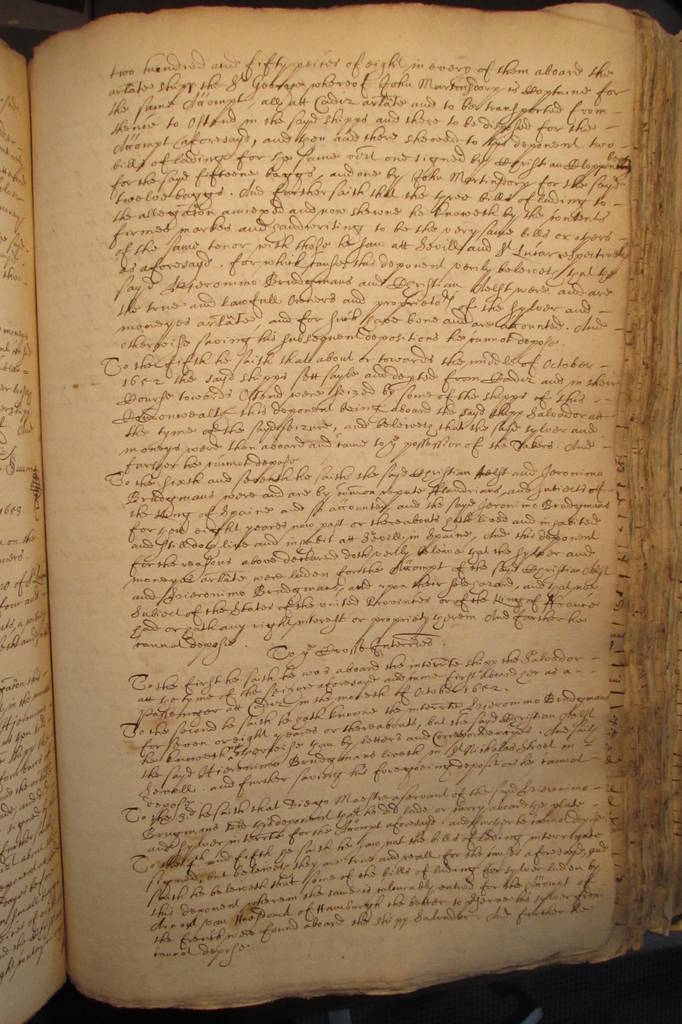 two hundred and fifty peices of eight in every of them aboard the
arlate shipp the St George whereof John Martinsdorp is Captaine for
the same Accompt, all att Cadiz arlate and to bee transported from
thence to Ostend in the sayd shipps and there to be disposed for the
Accompt aforesayd, and then and there shewed to this deponent two
bills of lading for the same vizt one signed by Christian Cloppenb
for the sayd fifteene baggs, and one by John Martinsdorp for the sayd
twelve baggs. And further saith that the three bills of lading to
the allegation annexed and now shewne he knoweth by the contents
firmes markes and handwriting to be the very same bills or others
of the same tenor with those he saw att Sevill and St Lucar respectively
as aforesayd. For which causes this deponent verily beleiveth that the
sayd Hieronimo Brudgmans and Christian Helst were and are
the true and lawfull Owners and proprietors of the sylver and
moneyes arlate, and for such have bene and are accounted. And
otherwise saving his subsequent depositions he cannot depose.
To the fifth he saith that about or towards the middle of October
1652 the sayd shipps sett sayle and depted from Cadiz and in their
Course towards Ostend were seized by some of the shipps of this
Commonwealth this deponent being aboard the sayd shipp Salvador att
the tyme of the sayd seizure, and beleiveth that the sayd sylver and
moneys were then aboard and came to ye possession of the Takers. And
further he cannot depose
To the sixth and seventh he saith the sayd Christian Helst and Jeronimo
Brudegmans were and are by common repute Flandrians, and subiects of
the King of Spaine and soe accounted, and the sayd Jeronimo Brudegmans
for seven or eight yeares now past or thereabouts hath lived and inhabited
and still doth live and inhabit att Sevill in Spaine, And this deponent
for the reasons above declared doth verily beleive that the sylver and
moneys arlate were laden for the Accompt of the sayd Christian Helst
and Hieronimo Brudegmans, and upon their hazard, and that noe
Subiect of the States of the united Provinces or of the King of France
had or hath any right interest or propriety therein And further hee
cannot depose.
To ye Crosse Interries.
To the first he saith he was aboard the interrate shipp the Salvador
att the tyme of the seizure aforesayd and came first aboard her as a
Passenger att Cadiz in the moneth of October 1652.
To the second he saith he hath knowne the interrate Hieronimo Brudegmans
for seven or eight yeares or thereabouts, but the sayd Christian Helst
he knoweth no otherwise than by letters and Correspondencyes. And saith
the sayd Hieronimo Brudegmans liveth in St Nicholas Street in
Sevill. and further saving his foregoeing depositions he cannot
depose
To the 3d he saith that Diego Maestre a servant of the sayd Hieronimo
Brugmans told this deponent that he did lade or carry aboard the plate
and sylver interrate for the Accompt aforesayd. And further he cannot depose
To the 4th and fifth he saith he saw not the bills of lading interrogate
signed, but beleiveth they are true and reall for the causes aforesayd, and
saith he beleiveth that some of the bills of lading for sylver laden by
this deponent wherein the same is colourably entred for the Accompt of
of Hamburgh the better to preserve his sylver from
the French were found aboard the shipp Salvador. And further he
cannot depose.